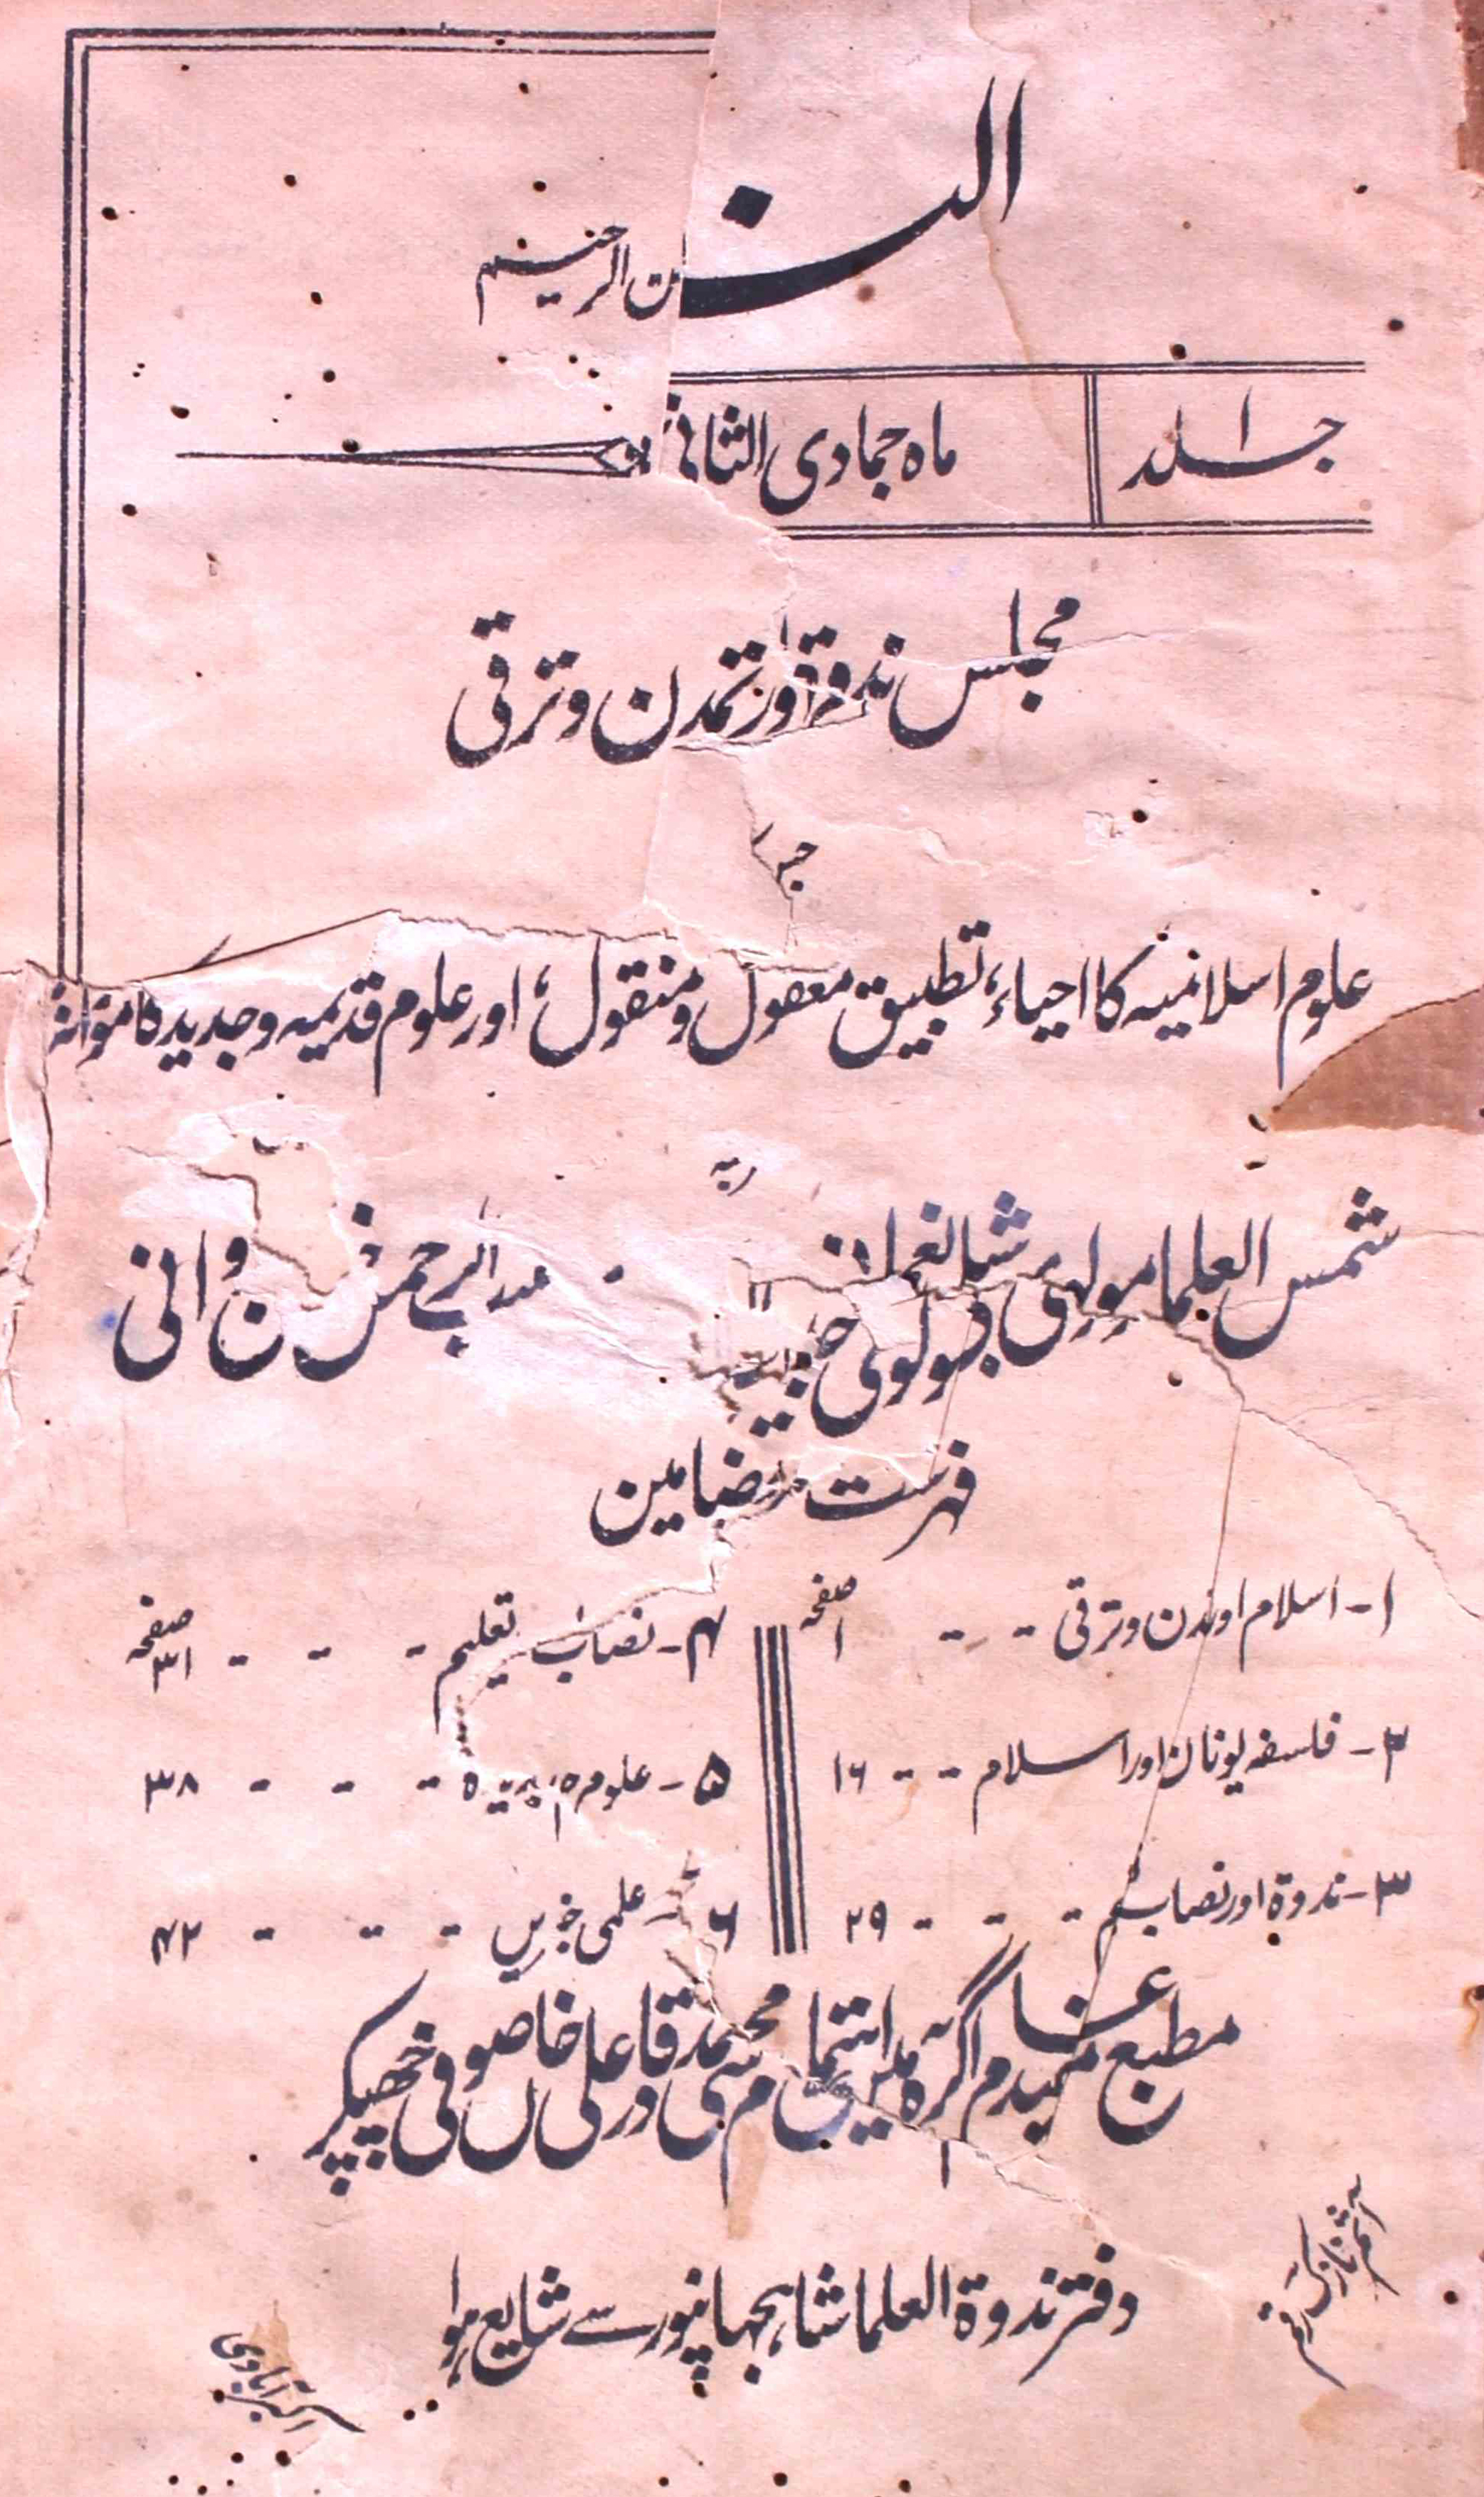 الن
ن الرحیم
جلد ۱
ماہ جمادی الثانی
مجلس ندوۃ اور تمدن و ترقی
علوم اسلامیہ کا احیاء، تطبیق معقول و منقول، اور علوم قدیمیہ و جدیدہ کا موازنہ
شمس العلما مولوی شبلی نعمانی
مولوی حبیب الرحمن خان شروانی
فہرست مضامین
۱- اسلام اور تمدن و ترقی - - صفحہ ۱
۲- فلسفہ یونان اور اسلام - - ۱۶
۳- ندوۃ اور نصاب - - - ۲۹
۴- نصاب تعلیم - - - صفحہ ۳۱
۵- علوم جدیدہ - - - ۳۸
۶- علمی خبریں - - - ۴۲
مطبع مفید عام آگرہ میں باہتمام محمد قادر علی خاں صوفی چھپکر
دفتر ندوۃ العلما شاہجہانپور سے شایع ہوا
اکبرآبادی